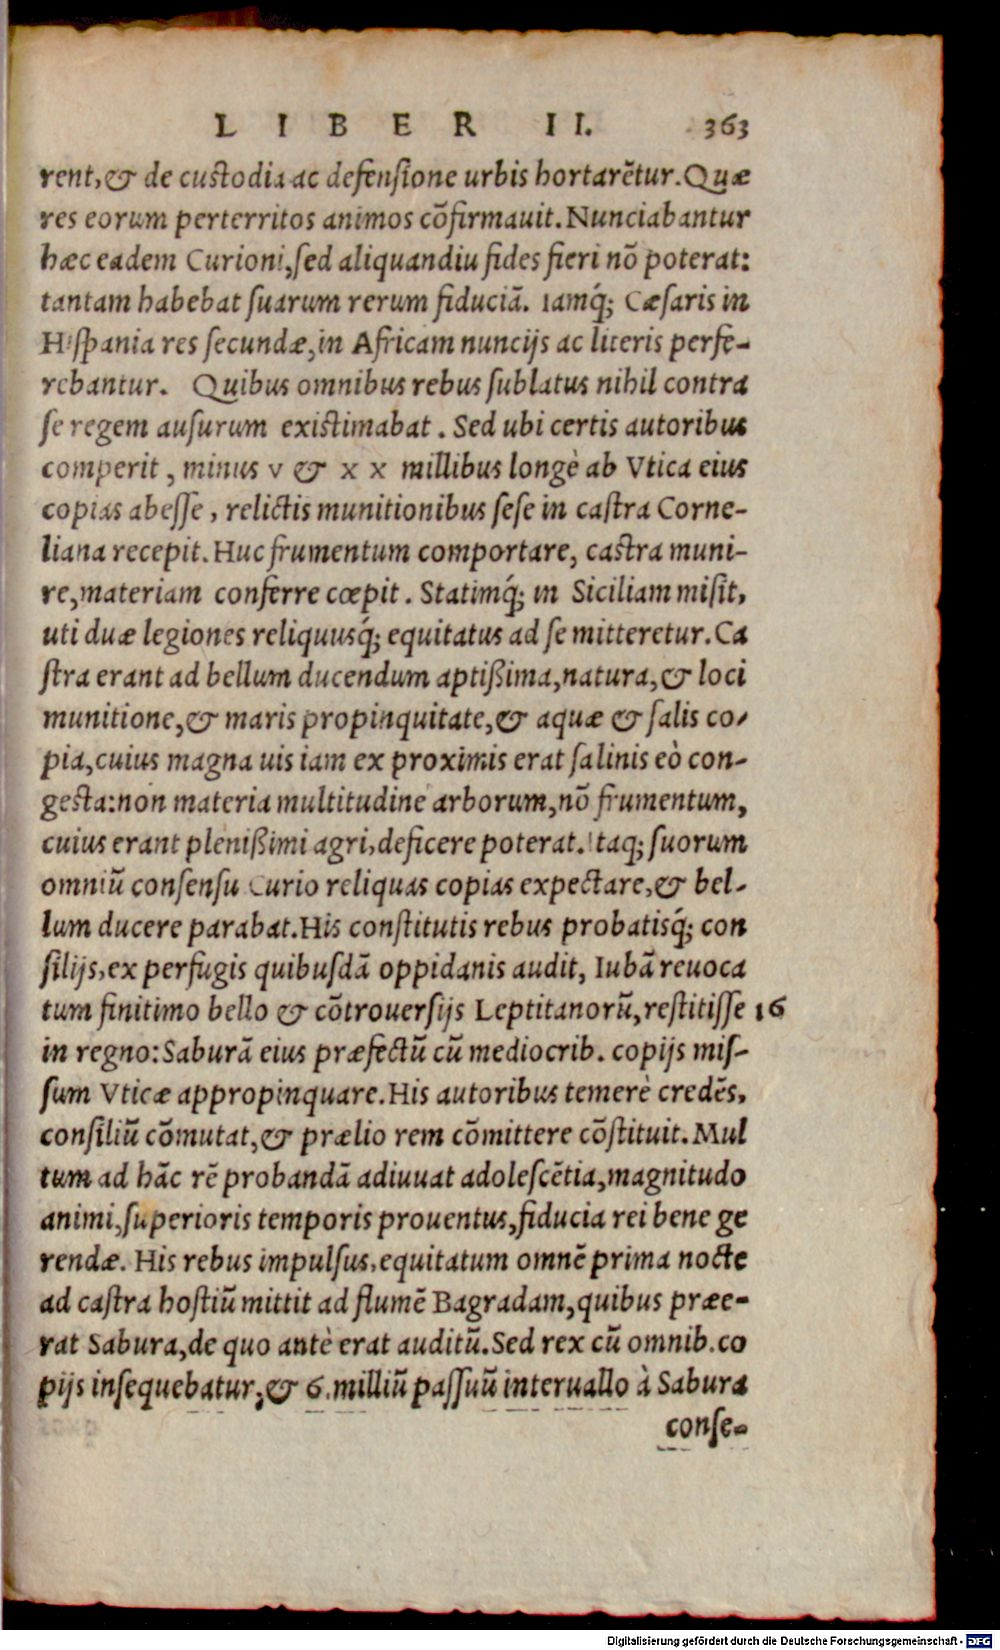 LIBER II. 363
rent, & de custodia ac defensione urbis hortarētur. Quæ
res eorum perterritos animos cōfirmauit. Nunciabantur
hæc eadem Curioni, sed aliquandiu fides fieri nō poterat:
tantam habebat suarum rerum fiduciā. Iamq́; Cæsaris in
Hispania res secundæ, in Africam nuncijs ac literis perfe-
rebantur. Quibus omnibus rebus sublatus nihil contra
se regem ausurum existimabat. Sed ubi certis autoribus
comperit, minus v & x x millibus longè ab Vtica eius
copias abesse, relictis munitionibus sese in castra Corne-
liana recepit. Huc frumentum comportare, castra muni-
re, materiam conferre cœpit. Statimq́; in Siciliam misit,
uti duæ legiones reliquusq́; equitatus ad se mitteretur. Ca
stra erant ad bellum ducendum aptißima, natura, & loci
munitione, & maris propinquitate, & aquæ & salis co-
pia, cuius magna uis iam ex proximis erat salinis eò con-
gesta: non materia multitudine arborum, nō frumentum,
cuius erant plenißimi agri, deficere poterat. Itaq; suorum
omniū consensu Curio reliquas copias expectare, & bel-
lum ducere parabat. His constitutis rebus probatisq́; con
silijs, ex perfugis quibusdā oppidanis audit, Iubā reuoca
tum finitimo bello & cōtrouersijs Leptitanorū, restitisse 16
in regno: Saburā eius præfectū cū mediocrib. copijs mis-
sum Vticæ appropinquare. His autoribus temerè credēs,
consiliū cōmutat, & prælio rem cōmittere cōstituit. Mul
tum ad hāc rē probandā adiuuat adolescētia, magnitudo
animi, superioris temporis prouentus, fiducia rei bene ge
rendæ. His rebus impulsus, equitatum omnē prima nocte
ad castra hostiū mittit ad flumē Bagradam, quibus præe-
rat Sabura, de quo antè erat auditū. Sed rex cū omnib. co
pijs insequebatur, & 6. milliū passuū interuallo à Sabura
conse-
Digitalisierung gefördert durch die Deutsche Forschungsgemeinschaft - DFG